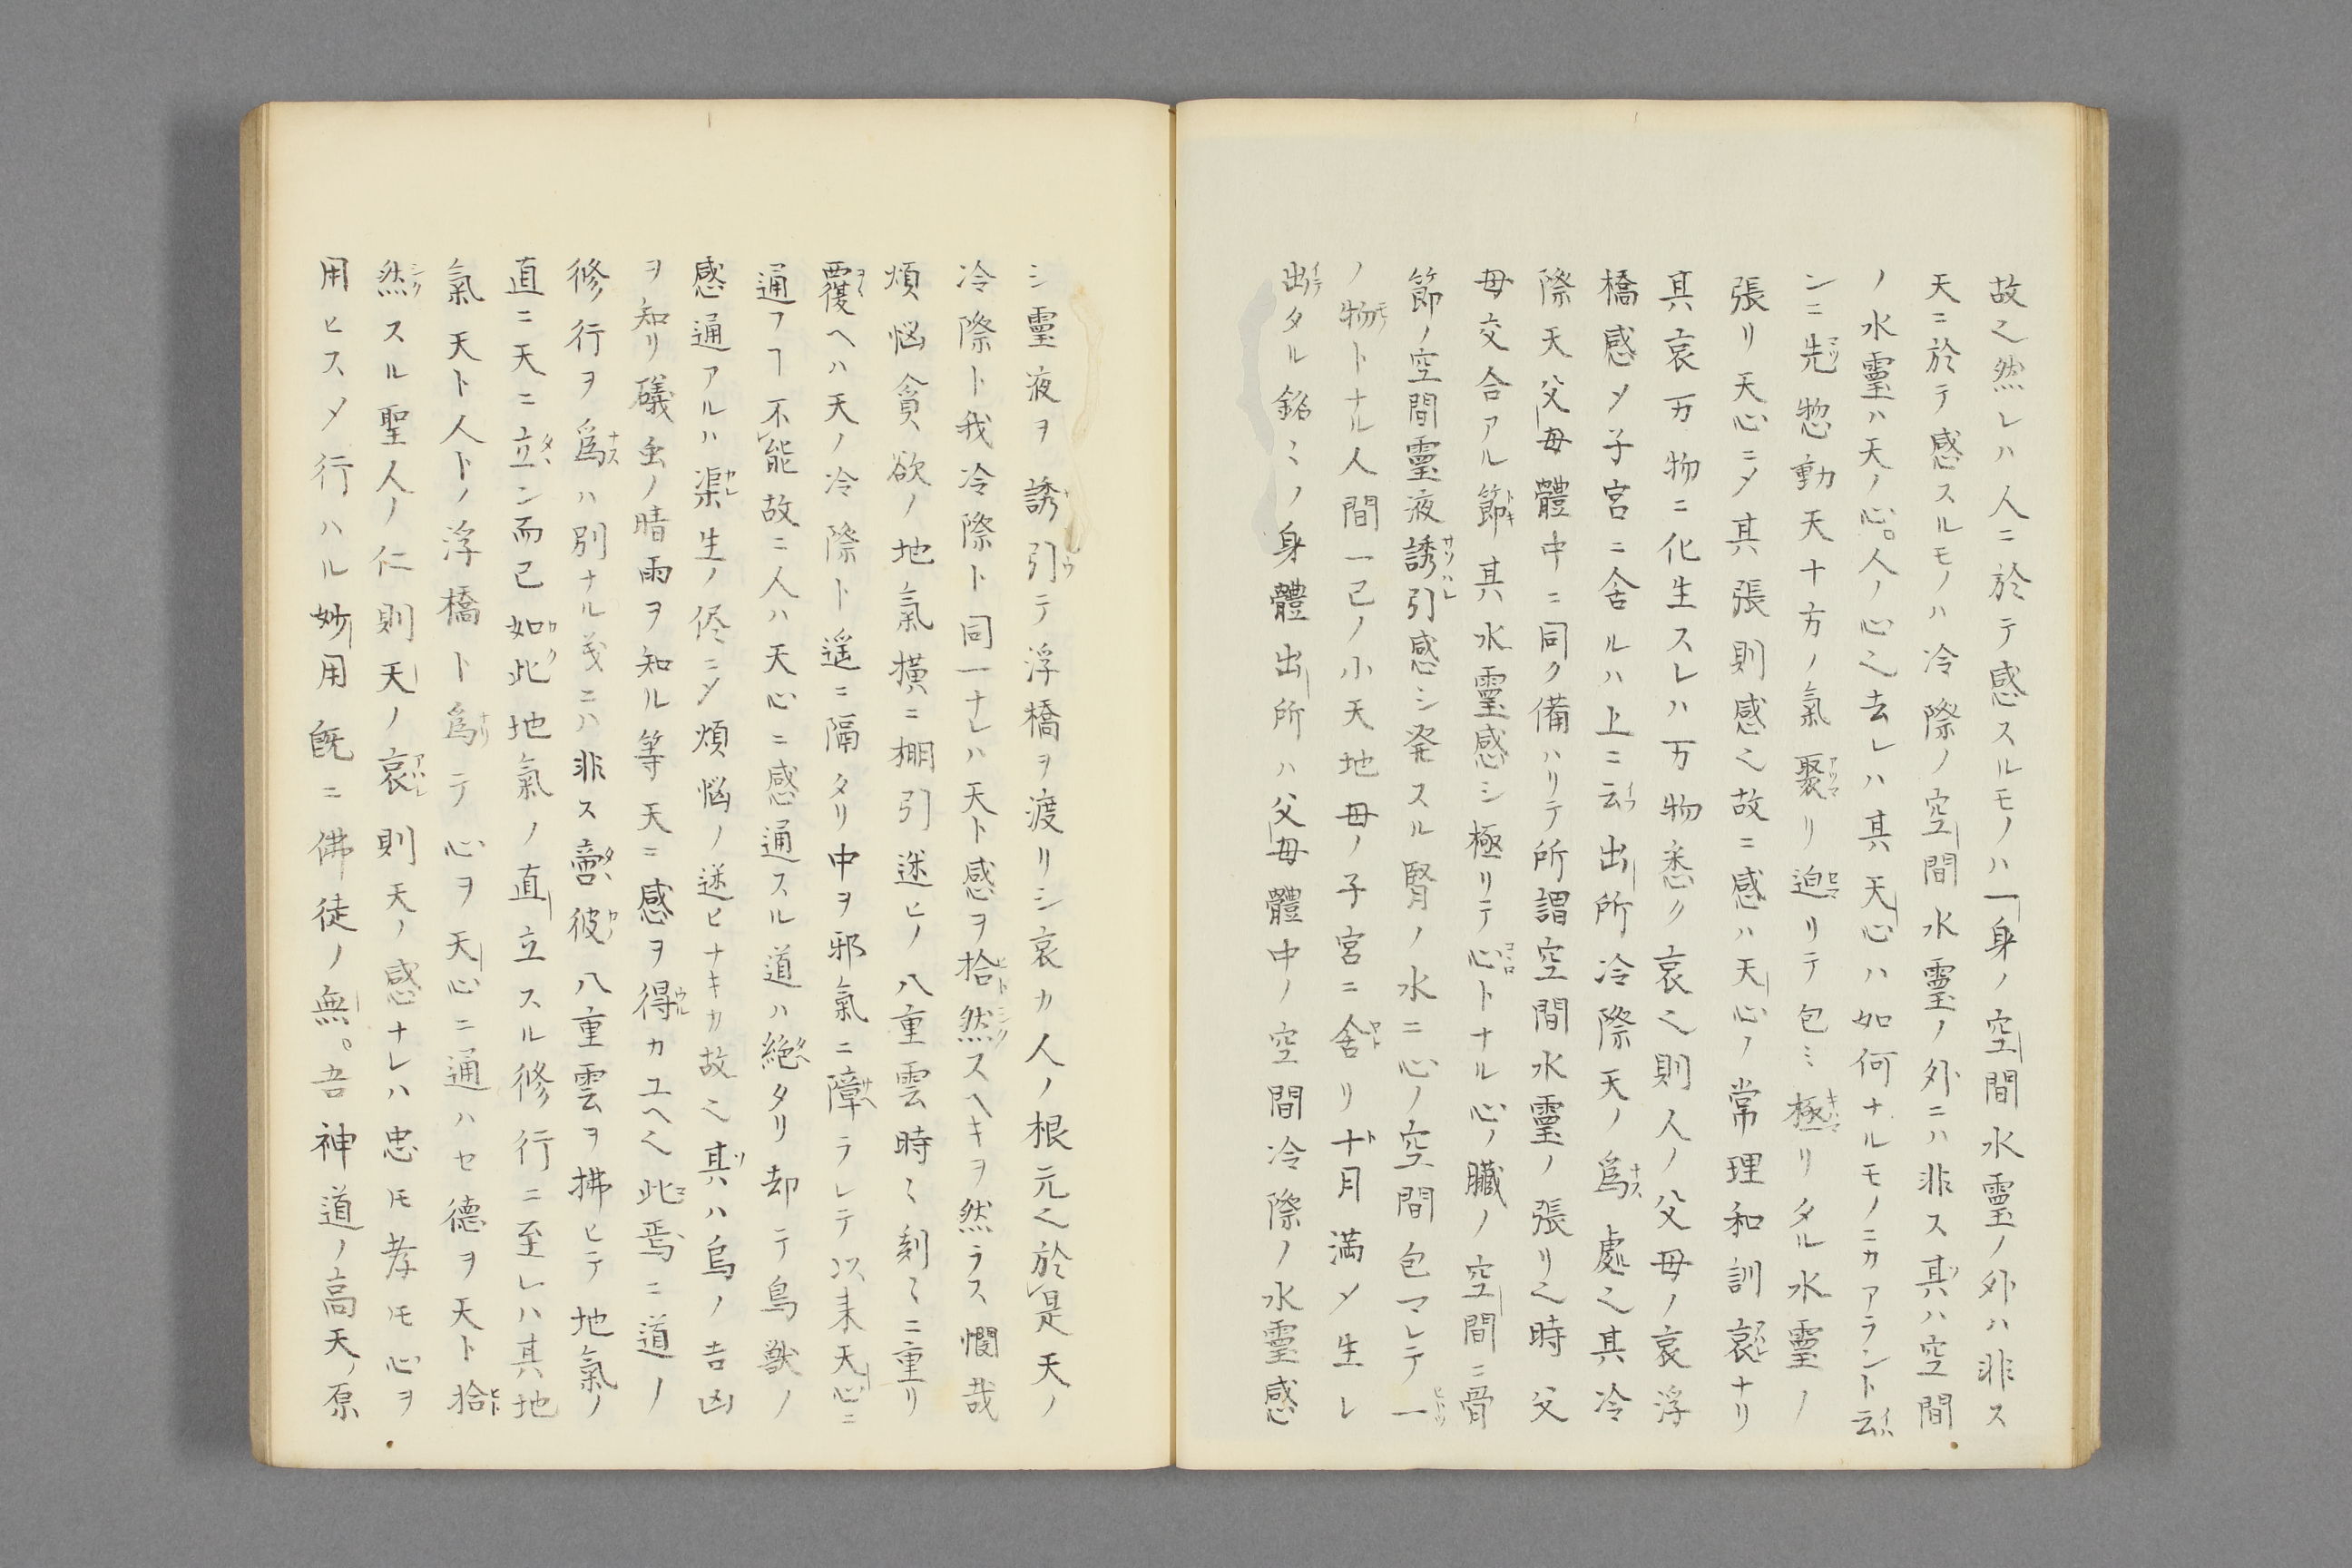 故之然レハ人ニ於テ感スルモノハ一身ノ空間水靈ノ外ハ非ス
天ニ於テ感スルモノハ冷際ノ空間水靈ノ外ニハ非ス其ハ空間
ノ水靈ハ天ノ心。人ノ心之去レハ其天心ハ如何ナルモノニカアラント云
ンニ先惣動天十方ノ氣聚リ迫リテ包ミ極リタル水靈ノ
張リ天心ニメ其張則感之故ニ感ハ天心ノ常理和訓哀ナリ
其哀万物ニ化生スレハ万物悉ク哀之則人ノ父母ノ哀浮
橋感メ子宮ニ舍ルハ上ニ云出所冷際天ノ爲處之其冷
際天父母體中ニ同ク備ハリテ所謂空間水靈ノ張リ之時父
母交合アル節其水靈感シ極リテ心トナル心ノ臓ノ空間ニ骨
節ノ空間靈液誘引感シ発スル腎ノ水ニ心ノ空間包マレテ一
ノ物トナル人間一已ノ小天地母ノ子宮ニ舍リ十月満メ生レ
出タル銘ミノ身體出所ハ父母體中ノ空間冷際ノ水靈感
シ靈液ヲ誘引テ浮橋ヲ渡リシ哀カ人ノ根元之於是天ノ
冷際ト我冷際ト同一ナレハ天ト感ヲ拾然スヘキヲ然ラス憫哉
煩悩貪欲ノ地氣橫ニ棚引迷ヒノ八重雲時〻刻〻ニ重リ
覆ヘハ天ノ冷際ト遥ニ隔タリ中ヲ邪氣ニ障ラレテ以来天心ニ
通フヿ不能故ニ人ハ天心ニ感通スル道ハ絶タリ却テ鳥獣ノ
感通アルハ渠生ノ侭ニメ煩悩ノ迷ヒナキカ故之其ハ烏ノ吉凶
ヲ知リ礒虫ノ晴雨ヲ知ル等天ニ感ヲ得カユヘ之此焉ニ道ノ
修行ヲ爲ハ別ナル義ニハ非ス啻彼八重雲ヲ拂ヒテ地氣ノ
直ニ天ニ立ン而已如此地氣ノ直立スル修行ニ至レハ其地
氣天ト人トノ浮橋ト爲テ心ヲ天心ニ通ハセ德ヲ天ト拾
然スル聖人ノ仁則天ノ哀則天ノ感ナレハ忠モ孝モ心ヲ
用ヒスメ行ハル妙用既ニ佛徒ノ無。吾神道ノ高天ノ原